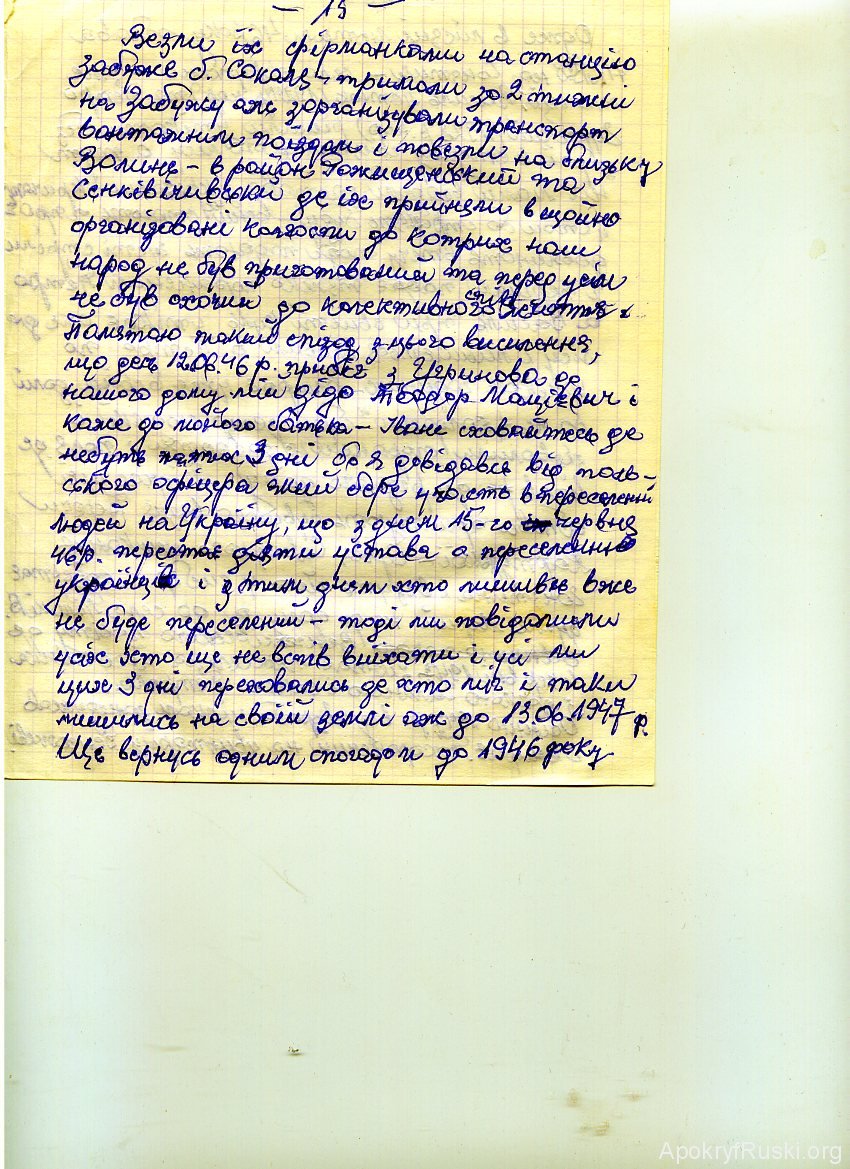 – 15 –
Везли їх фірманками на станцію
Забуже б. Сокаля, тримали за 2 тижні
на Забужу аж зарганізували транспорт
вантажним поїздом і повезли на близьку
Волинь – в район Рожищенський та
Сенківічивський де їх прийнели в щойно
організовані колгоспи до котрих наш
народ не був приготований та перед усім
не був охочий до колективного життя.
Памятаю такий епізод з цього виселення,
що десь 12.06.46 р. прибіг з Угринова до
нашого дому мій дідо Теодор Мацієвич і
каже до мойого батька – Іване сховайтесь де
небуть на тих 3 дні бо я довідався від поль-
ського офіцера який бере участь в переселенні
людей на Україну, що з днем 15-го червня
46р. перестає діяти устава о переселенню
українців і з тим днем хто лишився вже
не буде переселений – тоді ми повідомили
усіх хто ще не встів виїхати і усі ми
цих 3 дні переховались де хто міг і таки
лишились на своїй землі аж до 13.06.1947 р.
Ще вернусь одним спогадом до 1946 року
ApokryfRuski.org